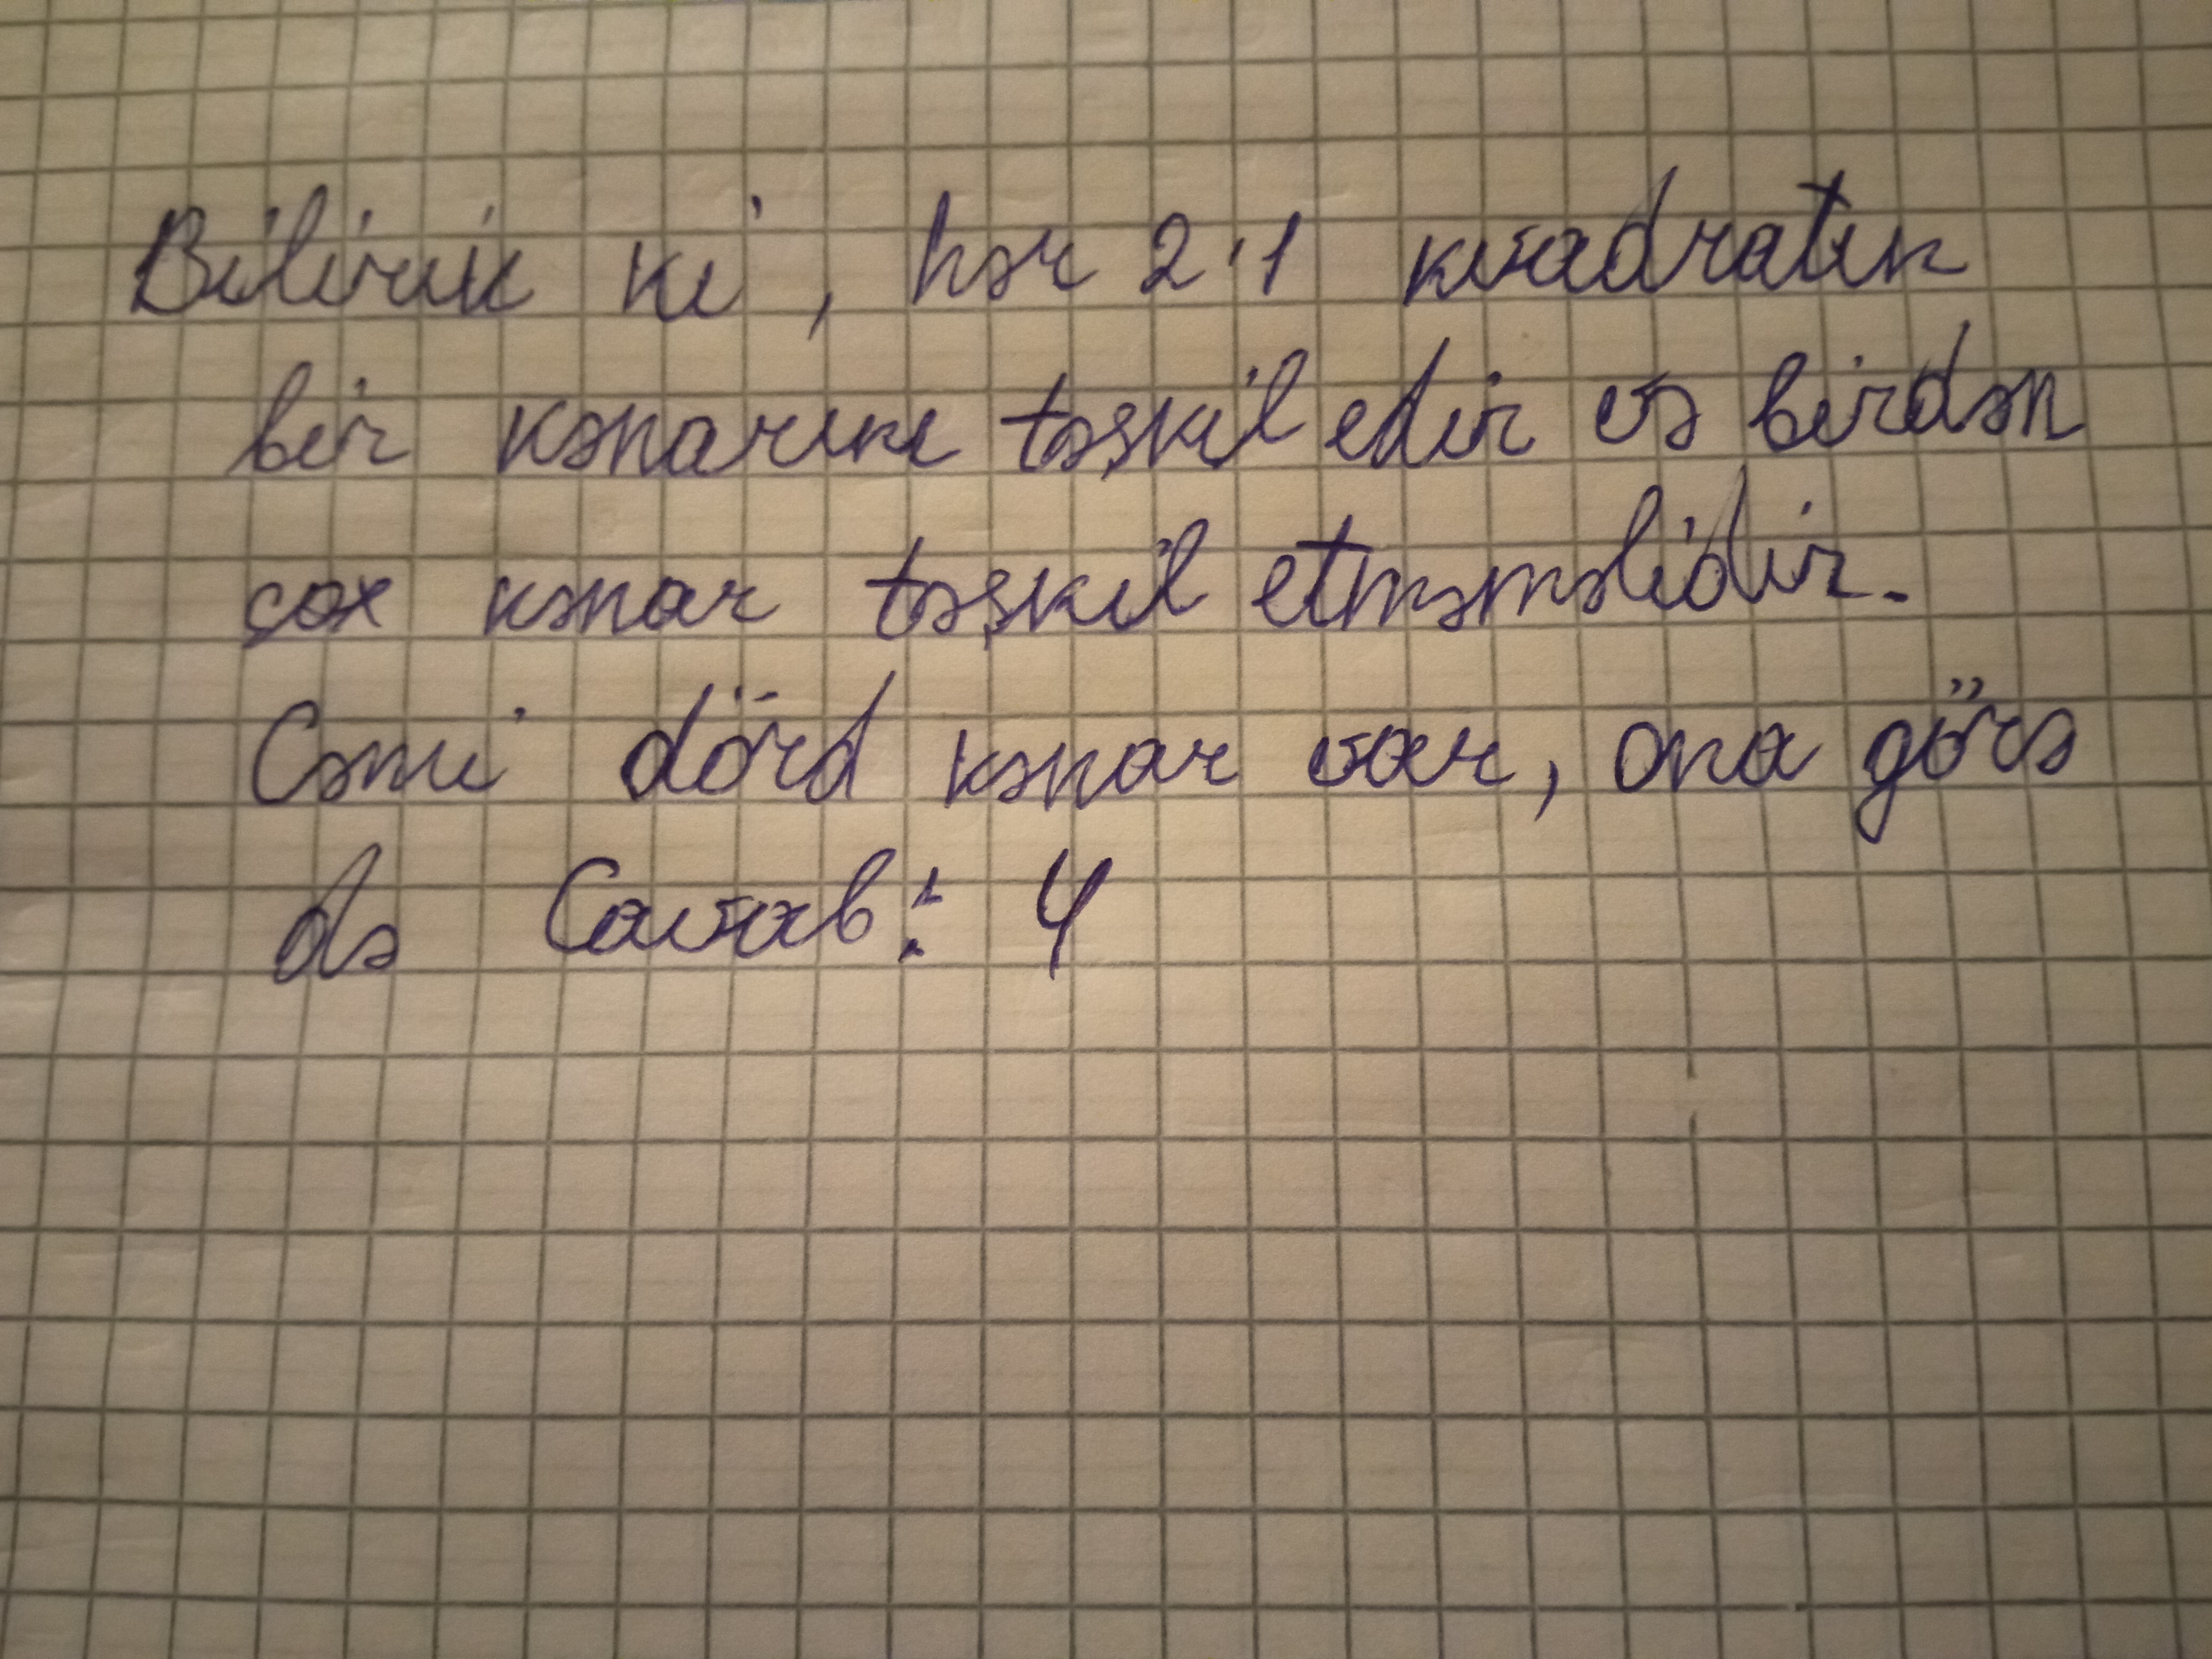 Bilirik ki, hər 2·1 kvadratın
bir kənarını təşkil edir və birdən
çox kənar təşkil etməməlidir.
Cəmi dörd kənar var, ona görə
də Cavab: 4